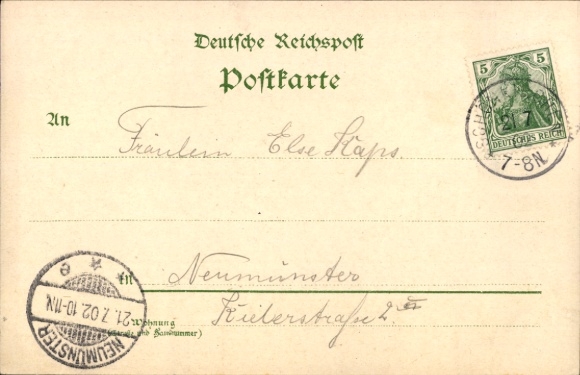 Deutsche Reichspost
Postkarte
An
Fräulein Else Kaps
5 5
DEUTSCHES REICH
21 7
7-8N.
in Neumünster
Kielerstraße 2
Wohnung
(Straße und Hausnummer)
21.7.02.10-11N.
NEUMÜNSTER